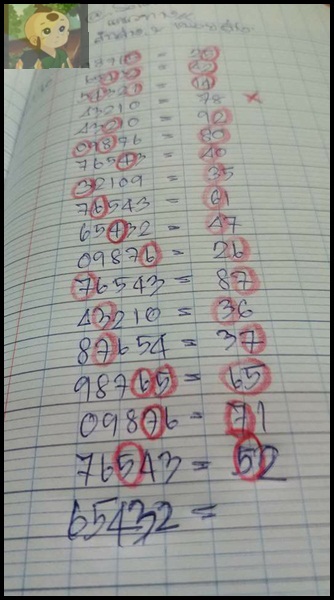 43210 = 78 ×
43210 = 92
09876 = 80
76543 = 40
32109 = 35
76543 = 61
65432 = 47
09876 = 26
76543 = 87
43210 = 36
87654 = 37
98765 = 65
09876 = 71
76543 = 52
65432 =